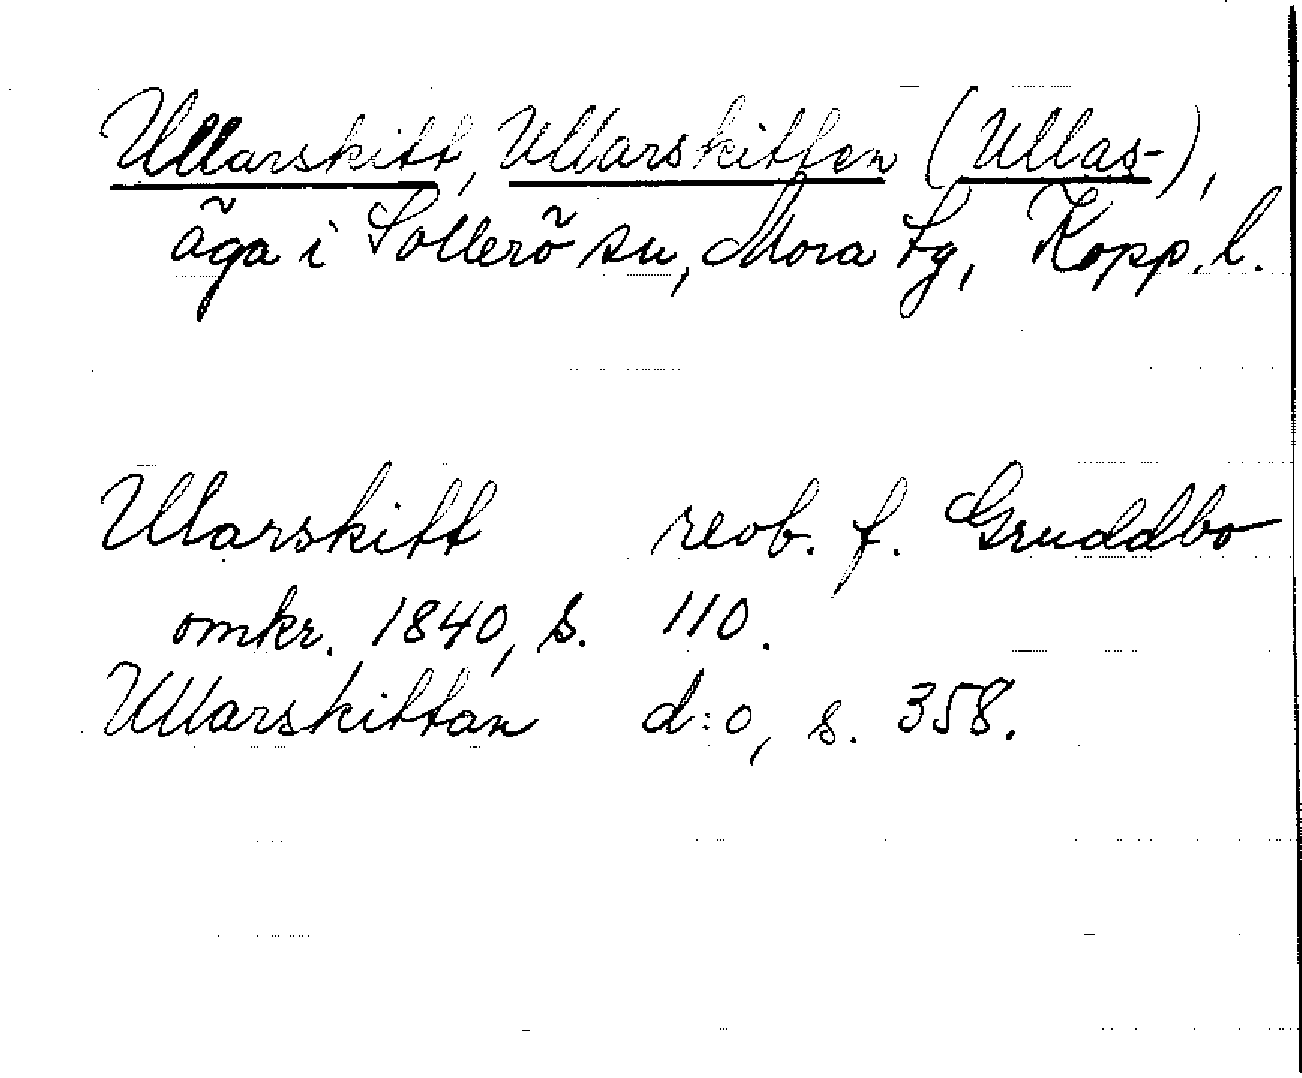 Ullarskitt, Ullarskitten (Ullas-),
äga i Sollerö sn, Mora tg, Kopp. l.
Ullarskitt reob. f. Gruddbo
omkr. 1840, s. 110.
Ullarskittan d:o, s. 358.